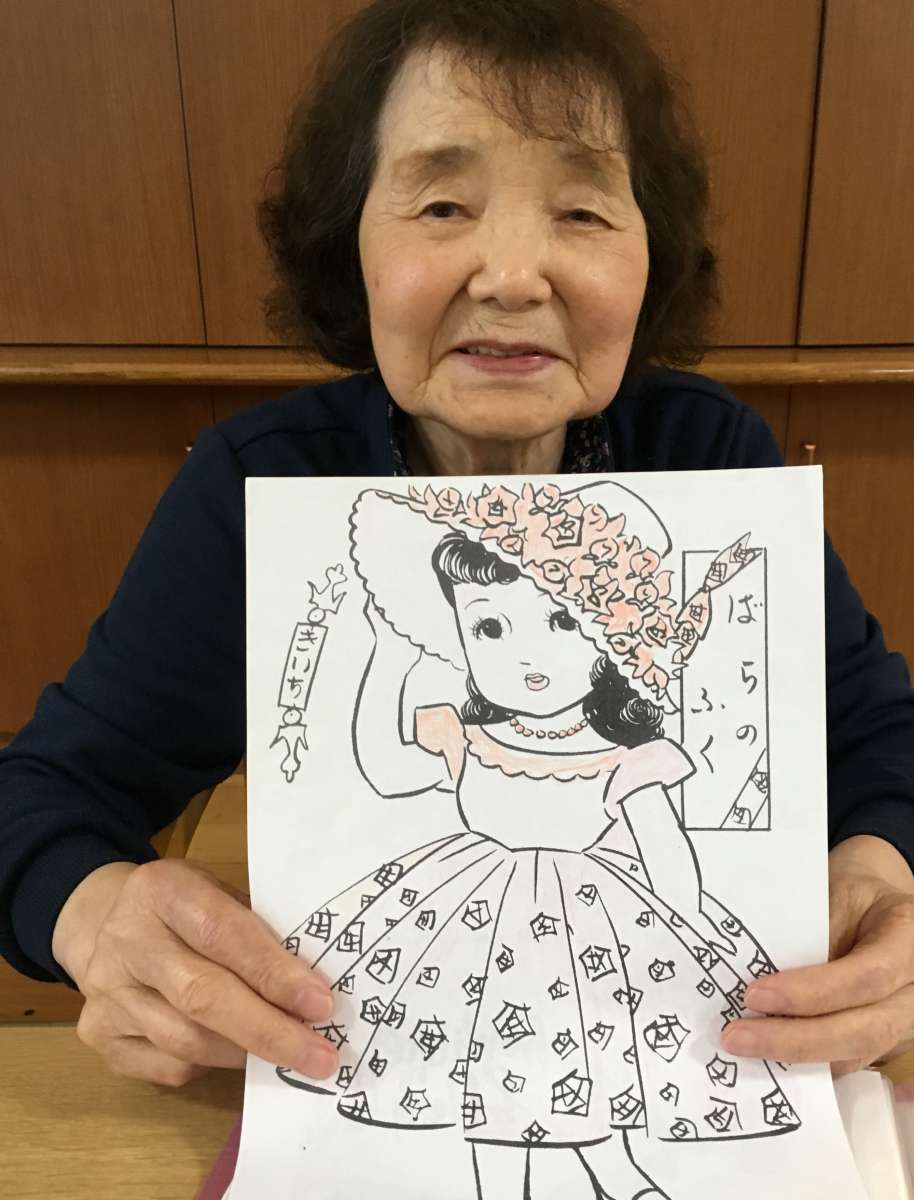 ばらの
ふく
きいち